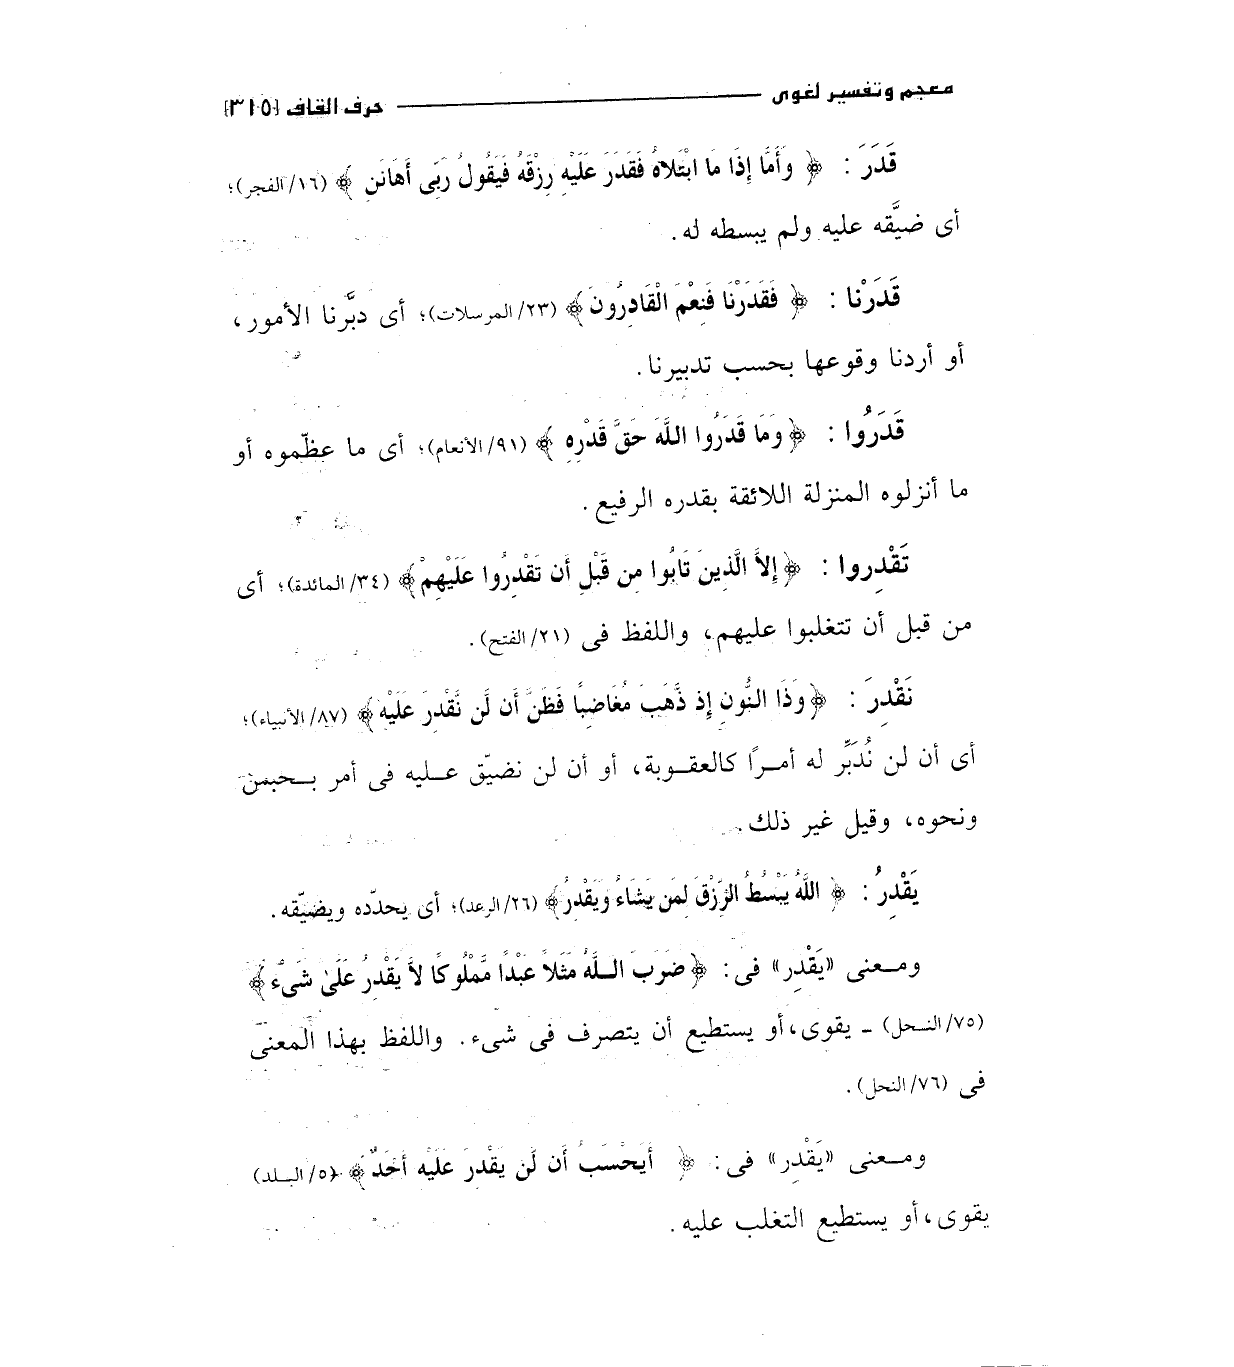 معجم وتفسير لغوى حرف القاف [٣١٥]
قَدَرَ : ﴿ وَأَمَّا إِذَا مَا ابْتَلاهُ فَقَدَرَ عَلَيْهِ رِزْقَهُ فَيَقُولُ رَبِّى أَهَانَنِ ﴾ (١٦/الفجر)؛
أى ضيَّقه عليه ولم يبسطه له.
قَدَرْنا : ﴿ فَقَدَرْنَا فَنِعْمَ الْقَادِرُونَ﴾ (٢٣/المرسلات)؛ أى دبَّرنا الأمور،
أو أردنا وقوعها بحسب تدبيرنا.
قَدَرُوا : ﴿وَمَا قَدَرُوا اللَّهَ حَقَّ قَدْرِهِ ﴾ (٩١/الأنعام)؛ أى ما عظّموه أو
ما أنزلوه المنزلة اللائقة بقدره الرفيع.
تَقْدِروا : ﴿إِلاَّ الَّذِينَ تَابُوا مِن قَبْلِ أَن تَقْدِرُوا عَلَيْهِمْ﴾ (٣٤/المائدة)؛ أى
من قبل أن تتغلبوا عليهم، واللفظ فى (٢١/الفتح).
نَقْدِرَ : ﴿وَذَا النُّونِ إِذ ذَّهَبَ مُغَاضِبًا فَظَنَّ أَن لَّن نَّقْدِرَ عَلَيْهِ﴾ (٨٧/الأنبياء)؛
أى أن لن نُدَبِّر له أمـرًا كالعقـوبة، أو أن لن نضيّق عـليه فى أمر بـحبس
ونحوه، وقيل غير ذلك.
يَقْدِرُ : ﴿ اللَّهُ يَبْسُطُ الرِّزْقَ لِمَن يَشَاءُ وَيَقْدِرُ﴾ (٢٦/الرعد)؛ أى يحدّده ويضيّقه.
ومـعنى «يَقْدِر» فى: ﴿ضَرَبَ اللَّهُ مَثَلاً عَبْدًا مَّمْلُوكًا لاَّ يَقْدِرُ عَلَىٰ شَىْءٍ﴾
(٧٥/النحل) ـ يقوى،أو يستطيع أن يتصرف فى شىء. واللفظ بهذا المعنى
فى (٧٦/النحل).
ومـعنى «يَقْدِر» فى: ﴿ أَيَحْسَبُ أَن لَّن يَقْدِرَ عَلَيْهِ أَحَدٌ﴾ (٥/البلد)
يقوى،أو يستطيع التغلب عليه.